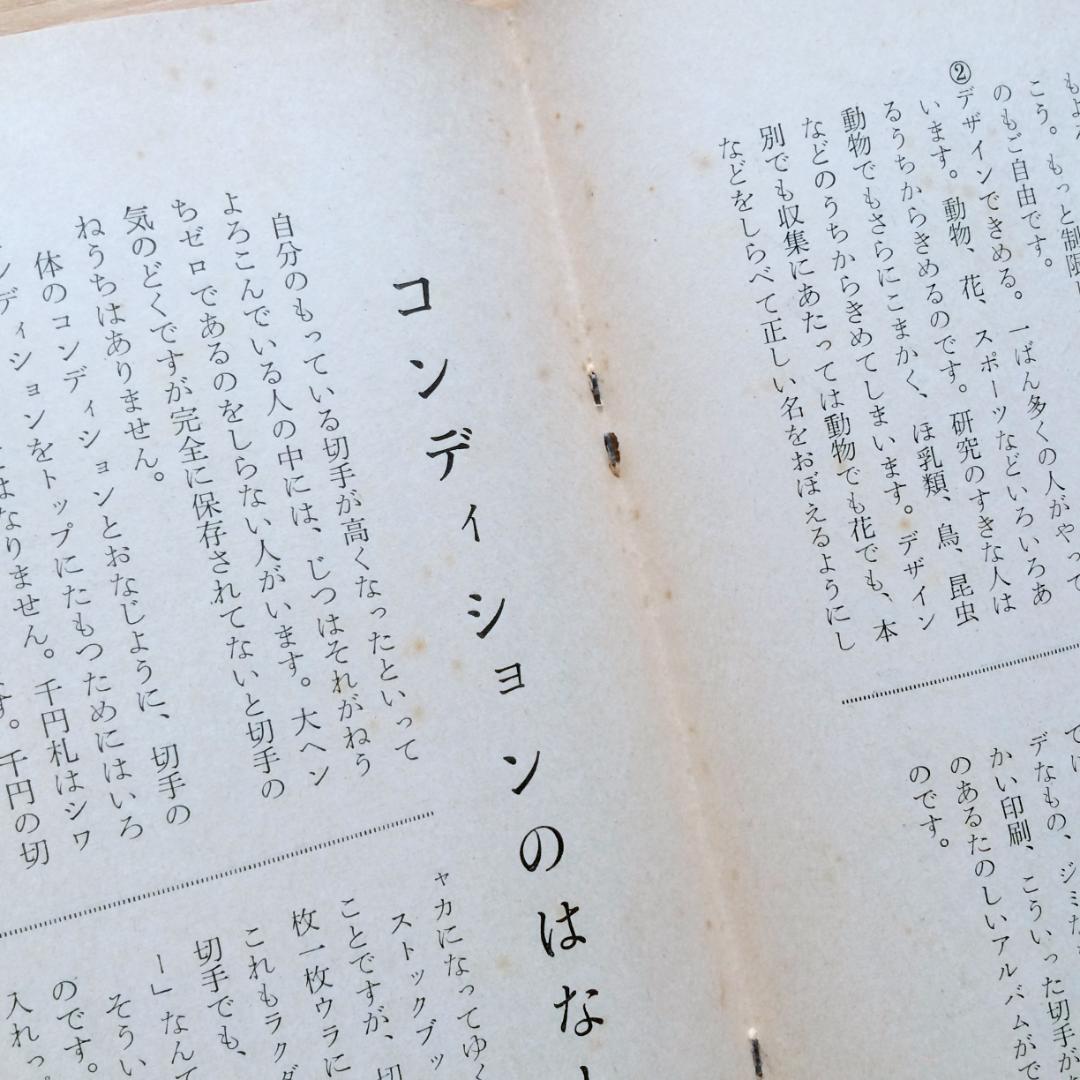 こう。もっと制限
のもご自由です。
②デザインできめる。一ばん多くの人がやって
います。動物、花、スポーツなどいろいろあ
るうちからきめるのです。研究のすきな人は
動物でもさらにこまかく、ほ乳類、鳥、昆虫
などのうちからきめてしまいます。デザイン
別でも収集にあたっては動物でも花でも、本
などをしらべて正しい名をおぼえるようにし
デなもの、ジミ
かい印刷、こういった切手が
のあるたのしいアルバムがで
のです。
コンディションのはな
自分のもっている切手が高くなったといって
よろこんでいる人の中には、じつはそれがねう
ちゼロであるのをしらない人がいます。大ヘン
気のどくですが完全に保存されてないと切手の
ねうちはありません。
体のコンディションとおなじように、切手の
ンディションをトップにたもつためにはいろ
はなりません。千円札はシワ
す。千円の切
ャカになってゆく
ストックブッ
ことですが、切
枚一枚ウラに
これもラクダ
切手でも、
ー」なんて
そうい
のです。
入れっ